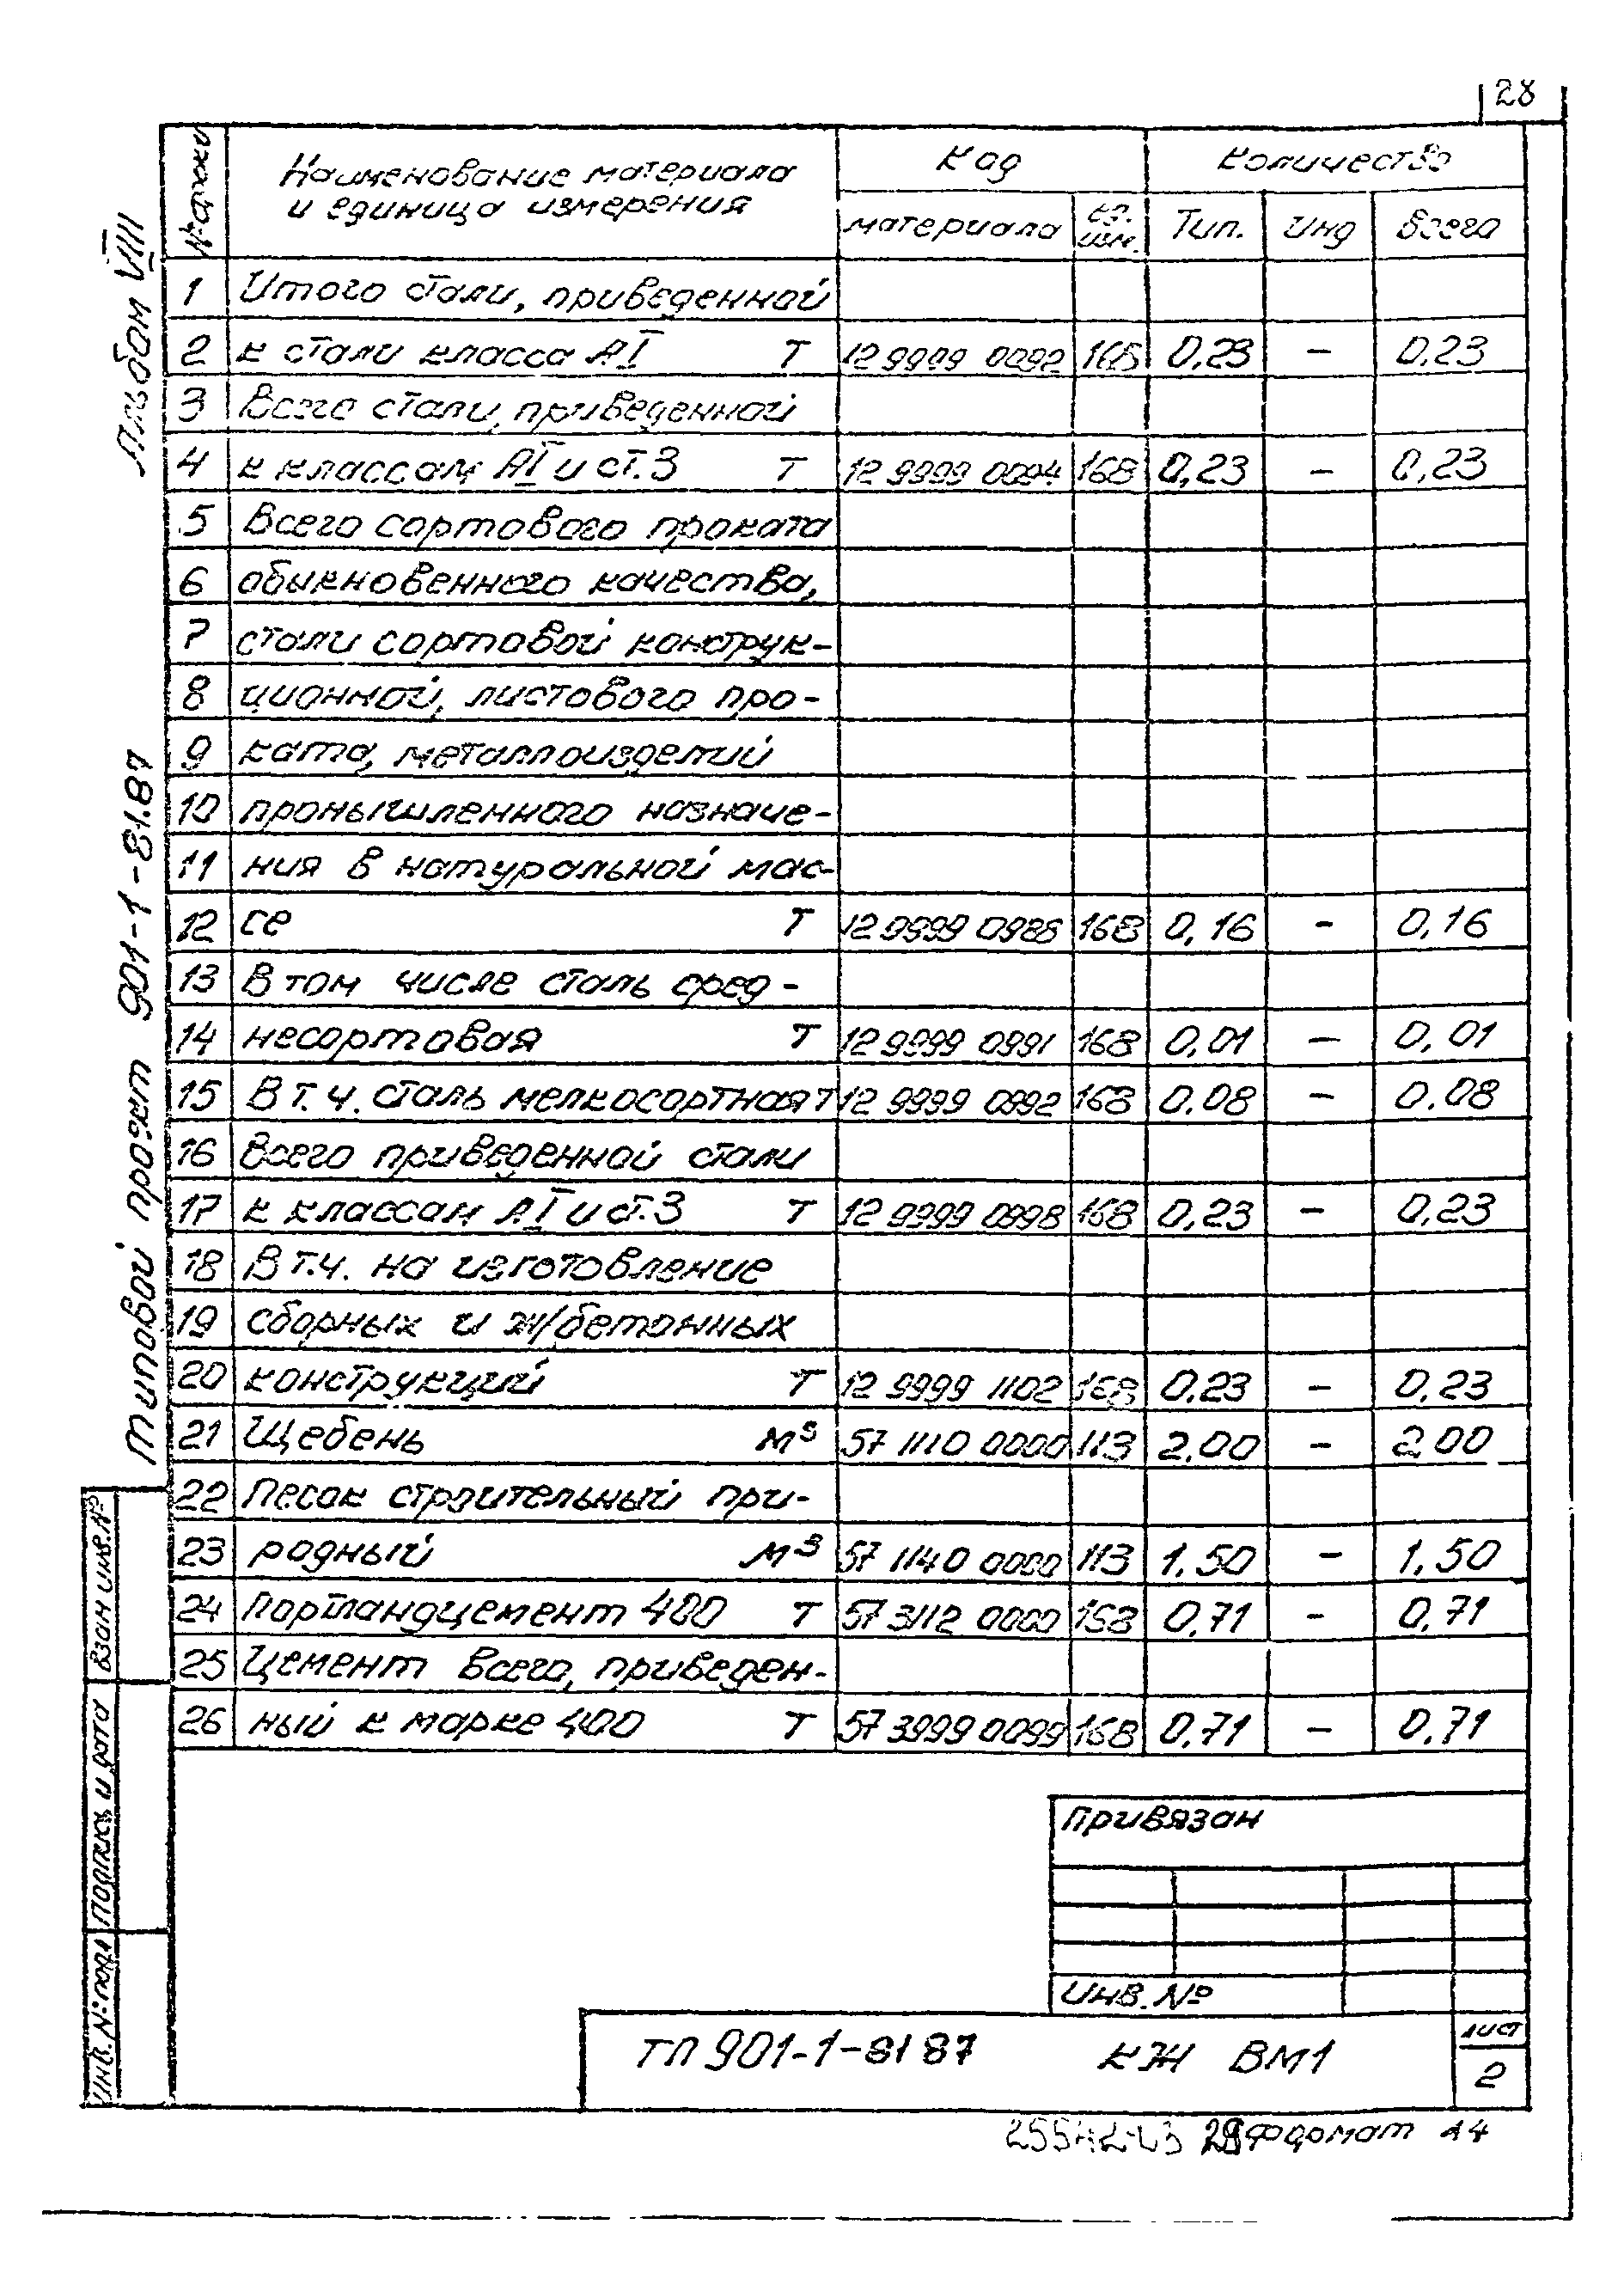 28
Альбом VIII
Типовой проект 901-1-81.87
№ строки
Наименование материала и единица измерения
Код
Количество
материала
ед. изм.
Тип.
Инд
Всего
1 Итого стали, приведенной
2 к стали класса АI Т 12 9999 0092 168 0,23 – 0,23
3 Всего стали, приведенной
4 к классам АI и ст.3 Т 12 9999 0094 168 0,23 – 0,23
5 Всего сортового проката
6 обыкновенного качества,
7 стали сортовой конструк-
8 ционной, листового про-
9 ката, металлоизделий
10 промышленного назначе-
11 ния в натуральной мас-
12 се Т 12 9999 0988 168 0,16 – 0,16
13 В том числе сталь сред-
14 несортовая Т 12 9999 0991 168 0,01 – 0,01
15 В т.ч. сталь мелкосортная Т 12 9999 0992 168 0.08 – 0.08
16 Всего приведенной стали
17 к классам АI и ст.3 Т 12 9999 0998 168 0,23 – 0,23
18 В т.ч. на изготовление
19 сборных и ж/бетонных
20 конструкций Т 12 9999 1102 168 0,23 – 0,23
21 Щебень м3 57 1110 0000 113 2,00 – 2,00
22 Песок строительный при-
23 родный м3 57 1140 0000 113 1,50 – 1,50
24 Портландцемент 400 Т 57 3112 0000 168 0,71 – 0,71
25 Цемент всего, приведен-
26 ный к марке 400 Т 57 3999 0099 168 0,71 – 0,71
Взам инв.№
Подпись и дата
Инв. № подл
Привязан
Инв. №
ТП 901-1-81 87 КЖ ВМ1
лист
2
29 Формат А4